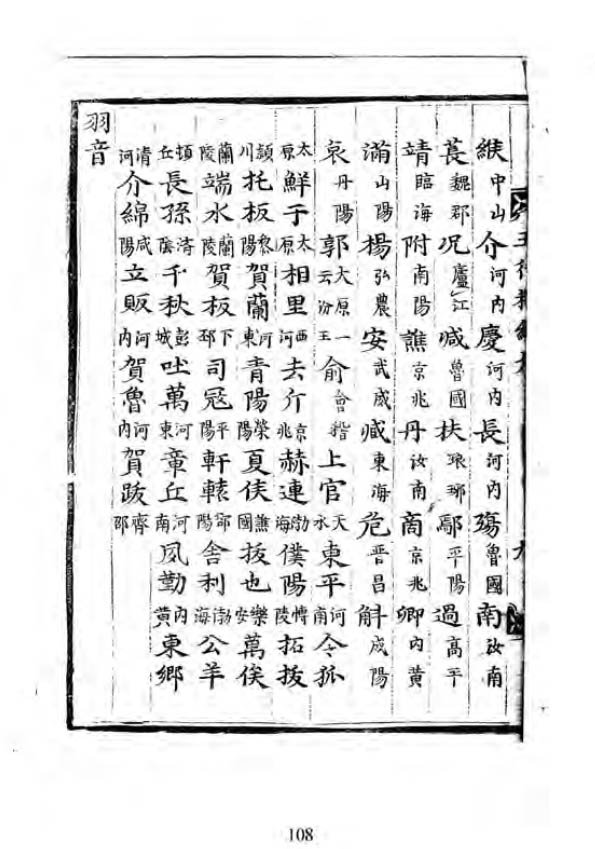 緱中山介河内慶河内長河内殤魯國南汝南
萇魏郡況廬江臧魯國扶琅琊鄢平陽過高平
靖臨海附南陽譙京兆丹汝南商京兆卿内黄
滿山陽楊弘農安武威臧東海危晋昌斛咸陽
哀丹陽郭大原一云汾王俞會稽上官天水東平河南令孤
太原鮮于太原相里西河去斤京兆赫連渤海僕陽博陵拓拔
潁川托板黎陽賀蘭河東青陽滎陽夏侯譙國拔也樂安萬俟
蘭陵端水蘭陵賀板下邳司冦平陽軒轅郃陽舍利渤海公羊
頓丘長孫濟陰千秋彭城吐萬河東章丘河南夙勤内黄東鄉
清河介綿咸陽立販河内賀魯河内賀跋齊郡
羽音
108